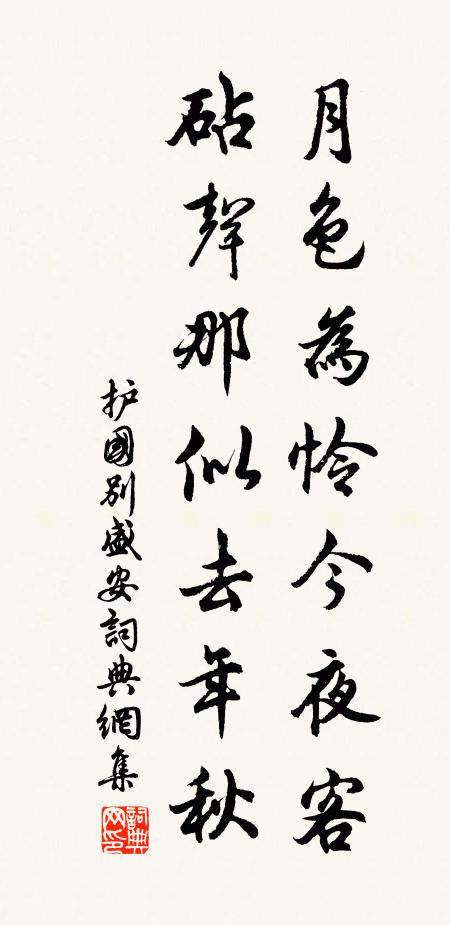 月色為怜今夜客
砧聲那似去年秋
护國別盛安詞典網集
詞典網印